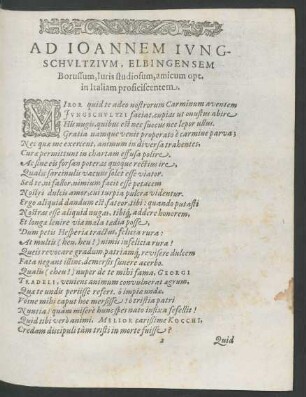 AD IOANNEM IVNG-
SCHVLTZIVM, ELBINGENSEM
Borussum, Iuris studiosum, amicum opt.
in Italiam proficiscentem.
MIROR quid te adeo nostrorum Carminum aventem
IVNGSCHVLTZI faciat, cupias ut onustus abire
His nugis, quibus est nec succus nec lepor ullus.
Gratia namque venit properatis è carmine parva:
Nec quae me exercent, animum in diversa trahentes,
Curae permittunt in chartam effusa polire.
Ac sine eis forsan poteras quoque rectius ire,
Qualis sarcinulis vacuus solet esse viator.
Sed te mi fautor, nimium facit esse petacem
Nostri dulcis amor, cui turpia pulcra videntur.
Ergo aliquid dandum est: fateor, tibi: quando putasti
Nostras esse aliquid nugas, tibiq́; addere honorem,
Et longae lenire viae mala taedia posse.
Dum petis Hesperiae tractus, felicia rura:
At multis (heu, heu!) nimis infelicia rura!
Queis revocare gradum patriamq́; revisere dulcem
Fata negant istinc, demersis funere acerbo.
Qualis (eheu!) nuper de te mihi fama, GEORGI
TRADELI, veniens animum convulnerat aegrum,
Qua te undis periisse refert, ô impia unda.
Pœne mihi caput hoc mersisse. ô tristia patri
Nuntia! quàm miserè hunc spes nato invisa fefellit!
Quid tibi verò animi, MELIOR carissime KOCCHI,
Credam discipuli tàm tristi in morte fuisse?
2
Quid